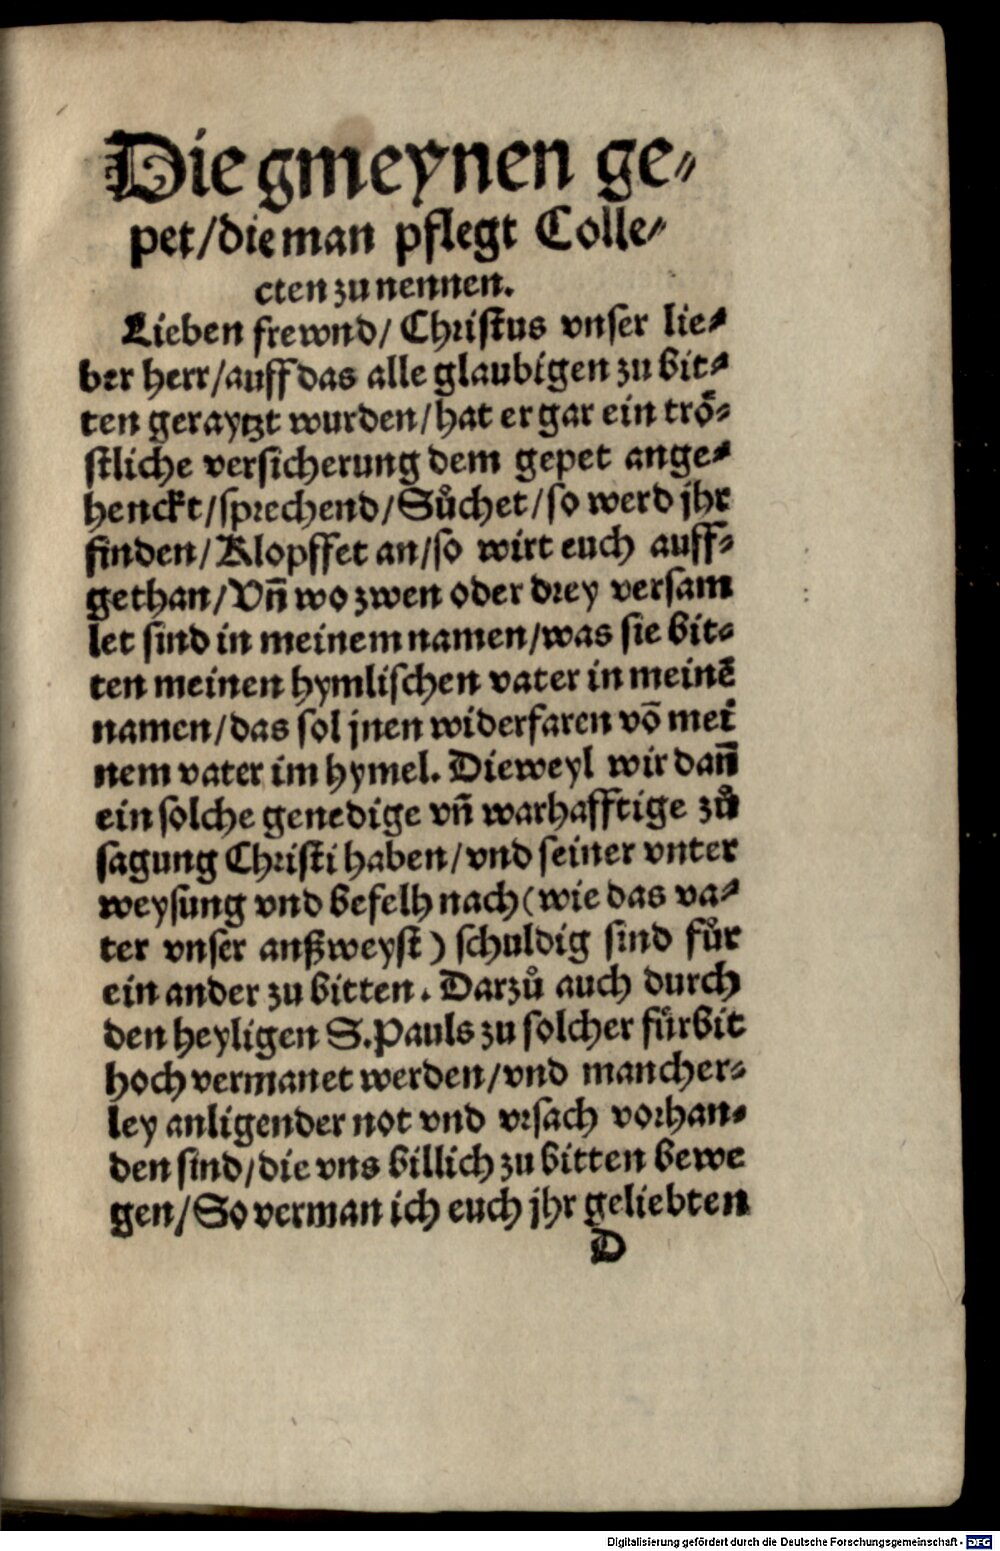 Die gmeynen ge⸗
pet/die man pflegt Colle⸗
cten zu nennen.
Lieben frewnd/ Christus vnser lie⸗
ber herr/auff das alle glaubigen zu bit⸗
ten geraytzt wurden/hat er gar ein trö⸗
stliche versicherung dem gepet ange⸗
henckt/sprechend/Sůchet/so werd jhr
finden/Klopffet an/so wirt euch auff⸗
gethan/Vn̄ wo zwen oder drey versam
let sind in meinem namen/was sie bit⸗
ten meinen hymlischen vater in meinē
namen/das sol jnen widerfaren vō mei
nem vater im hymel. Dieweyl wir dan̄
ein solche genedige vn̄ warhafftige zů
sagung Christi haben/vnd seiner vnter
weysung vnd befelh nach(wie das va⸗
ter vnser anßweyst) schuldig sind fůr
ein ander zu bitten. Darzů auch durch
den heyligen S. Pauls zu solcher fürbit
hoch vermanet werden/vnd mancher⸗
ley anligender not vnd vrsach vorhan⸗
den sind/die vns billich zu bitten bewe
gen/So verman ich euch jhr geliebten
D
Digitalisierung gefördert durch die Deutsche Forschungsgemeinschaft - DFG